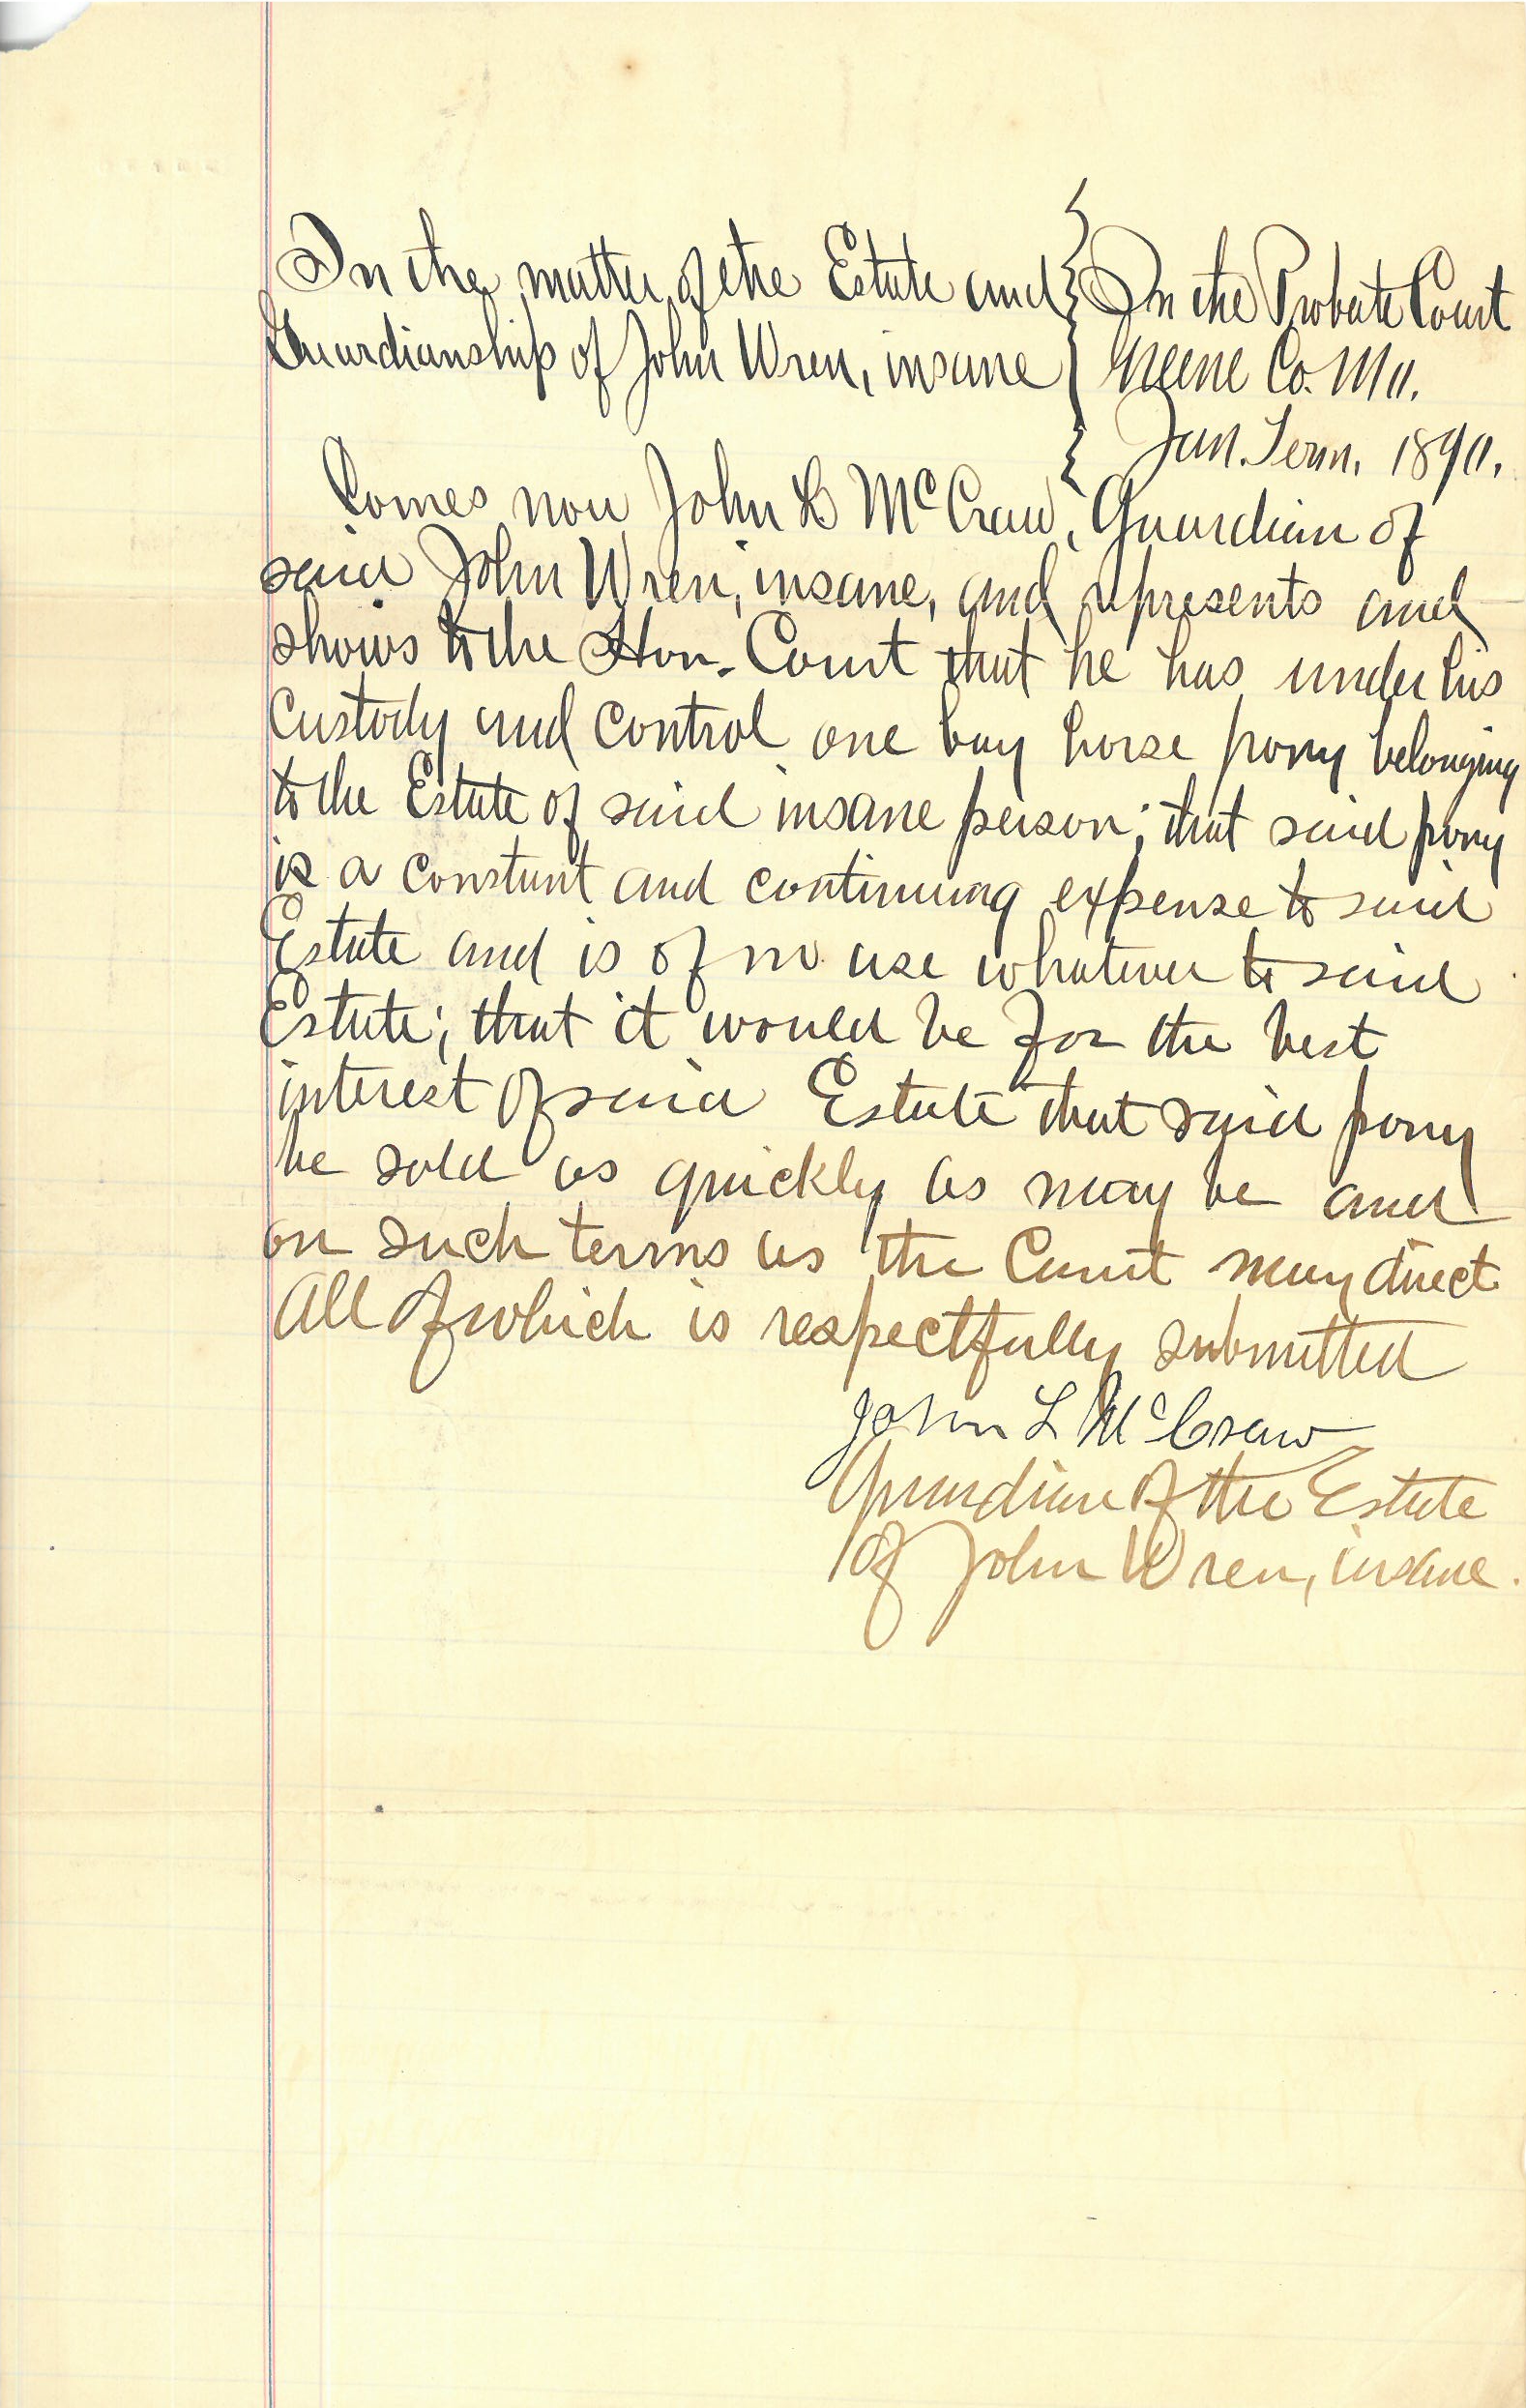 In the matter of the Estate and } In the Probate Court
Guardianship of John Wren, insane } Greene Co. Mo.
Jan. Term, 1890.
Comes now John L McCraw, Guardian of
said John Wren, insane, and represents and
shows to the Hon. Court that he has under his
custody and control one bay horse pony belonging
to the Estate of said insane person; that said pony
is a constant and continuing expense to said
Estate and is of no use whatever to said
Estate; that it would be for the best
interest of said Estate that said pony
be sold as quickly as may be and
on such terms as the Court may direct.
All of which is respectfully submitted
John L McCraw
Guardian of the Estate
of John Wren, insane.